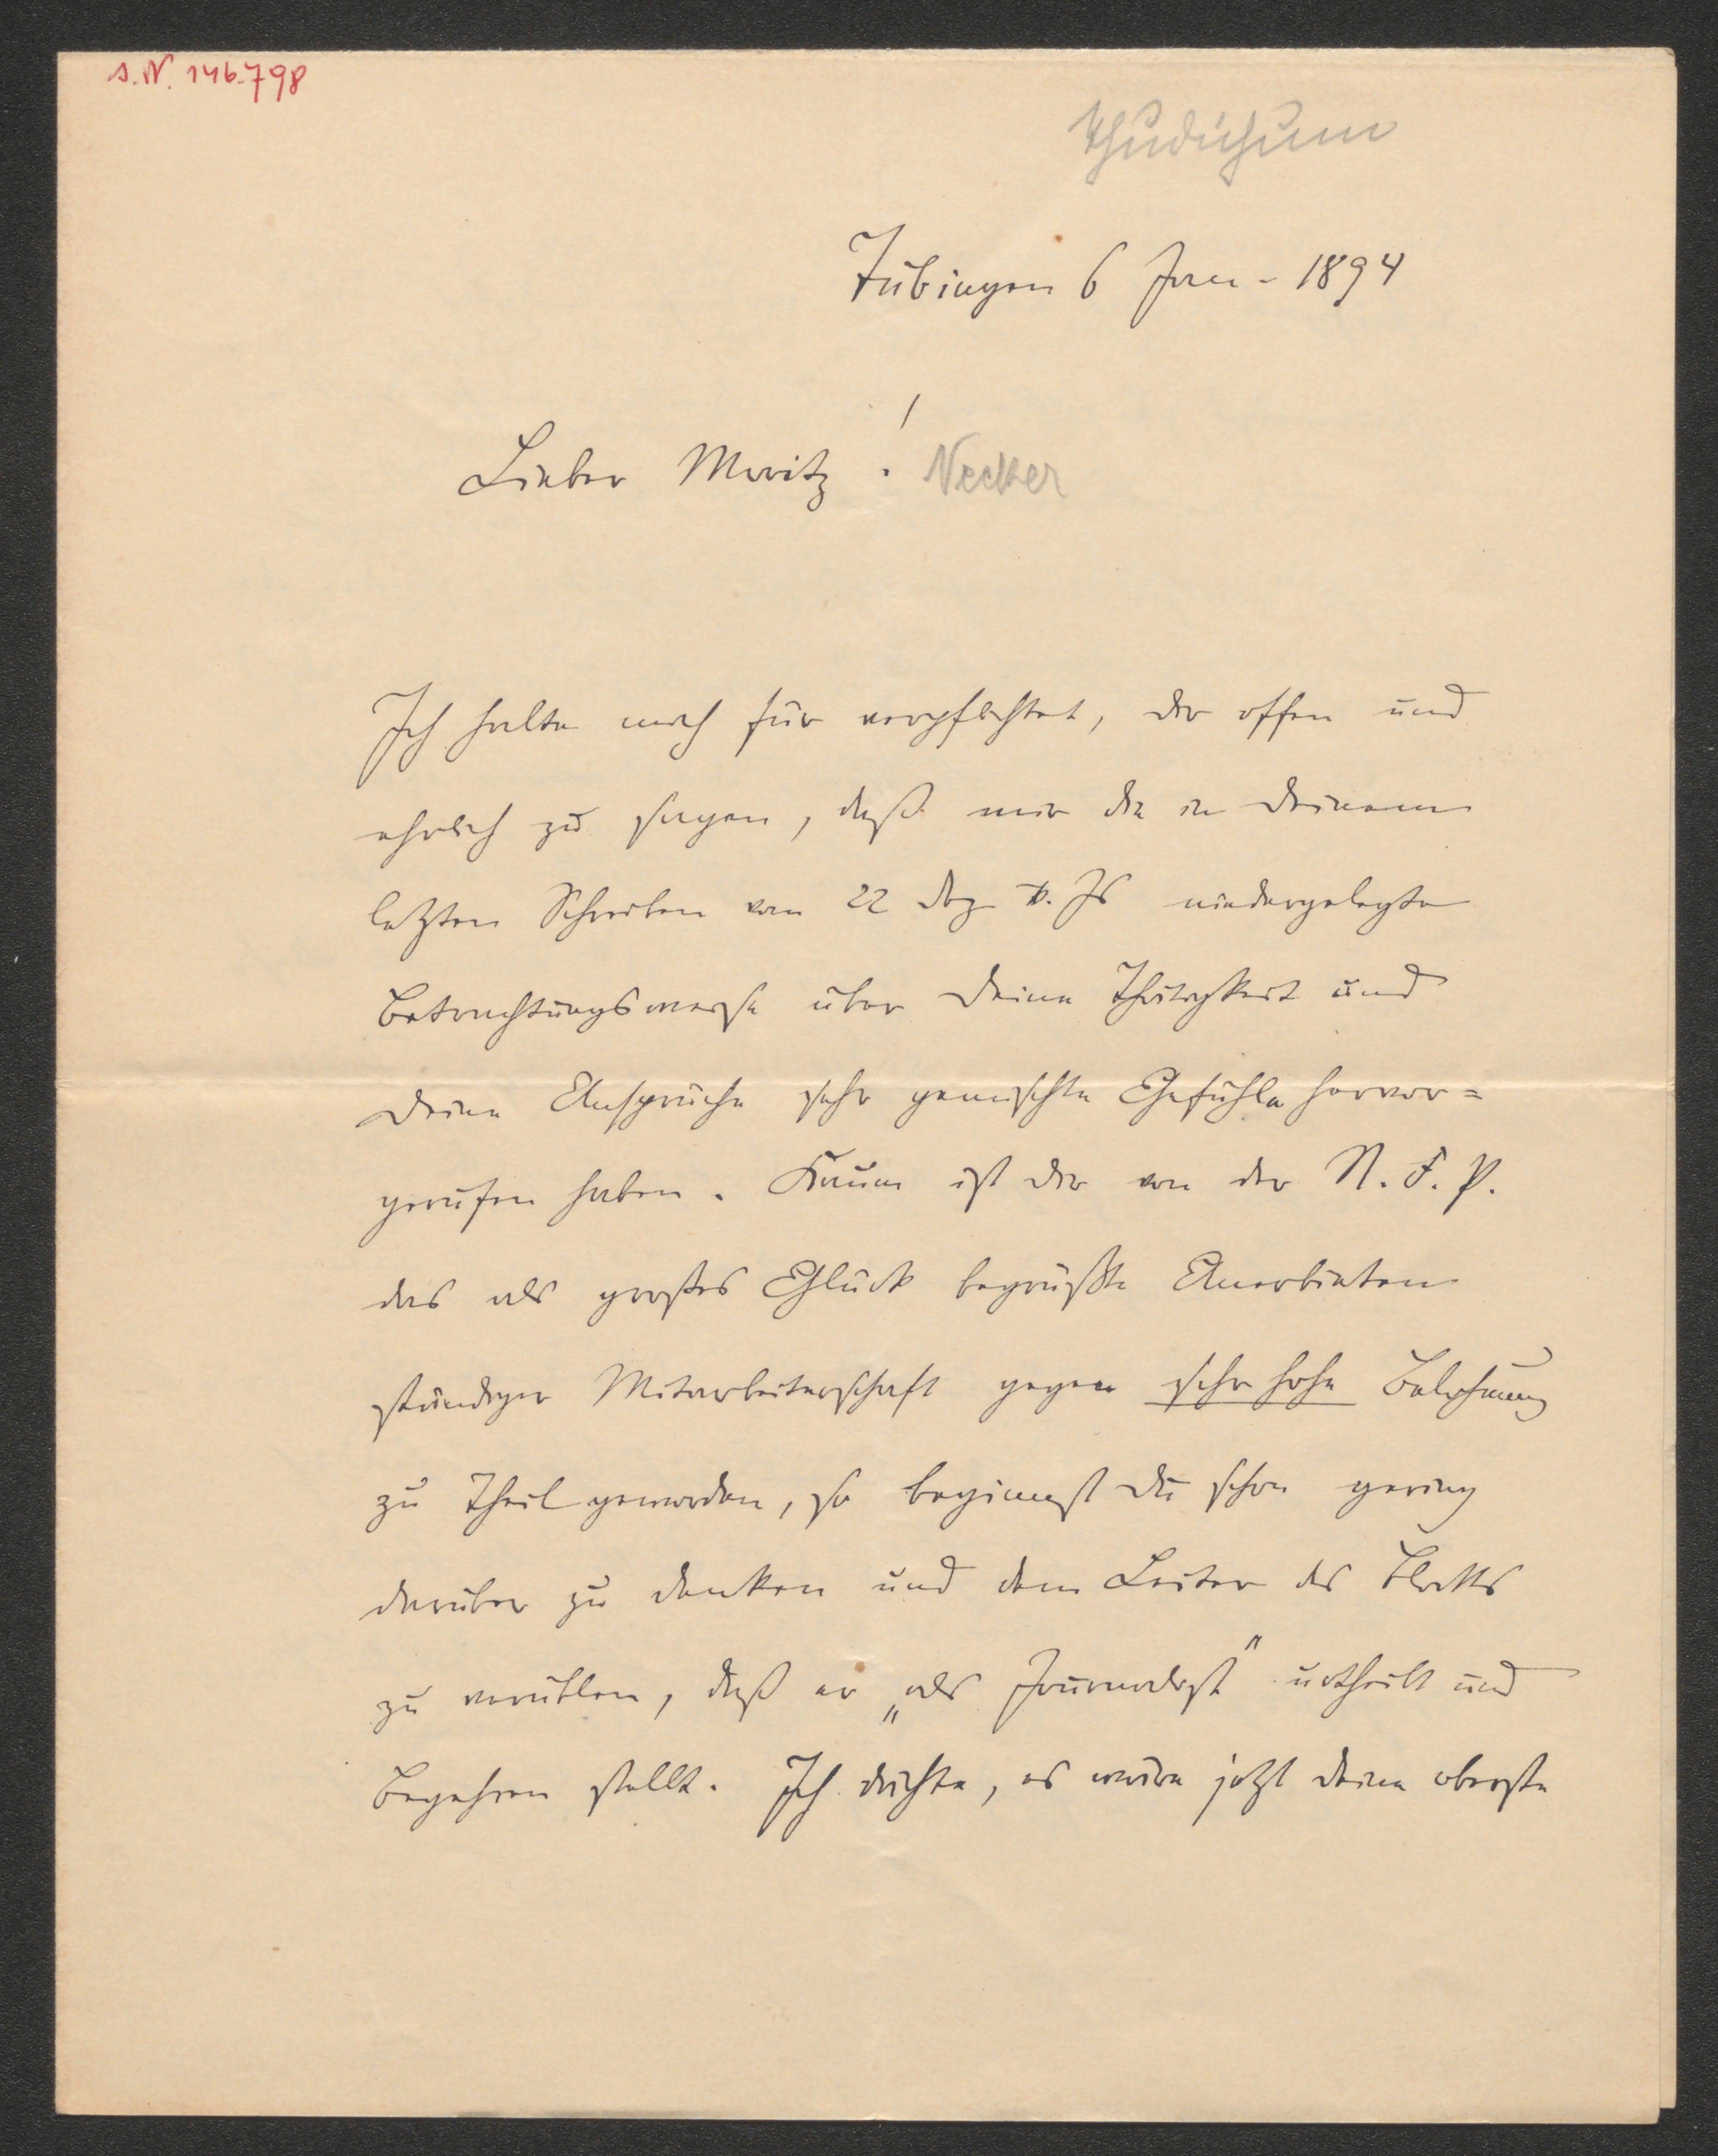 J.N. 146.798
Thudichum
Tübingen 6 Jan. 1894
Lieber Moritz! Necker
Ich halte mich für verpflichtet, dir offen und
ehrlich zu sagen, daß mir die in Deinem
letzten Schreiben vom 22 Dez v. Js niedergelegte
Betrachtungsweise über Deine Thätigkeit und
Deine Ansprüche sehr gemischte Gefühle hervor=
gerufen haben. Kaum ist dir von der N. F. P.
das als großes Glück begrüßte Anerbieten
ständiger Mitarbeiterschaft gegen sehr hohe Belohnung
zu Theil geworden, so beginnst Du schon gering
darüber zu denken und dem Leiter des Blatts
zu verübeln, daß er „als Journalist" urtheilt und
Begehren stellt. Ich dächte, es wäre jetzt deine oberste